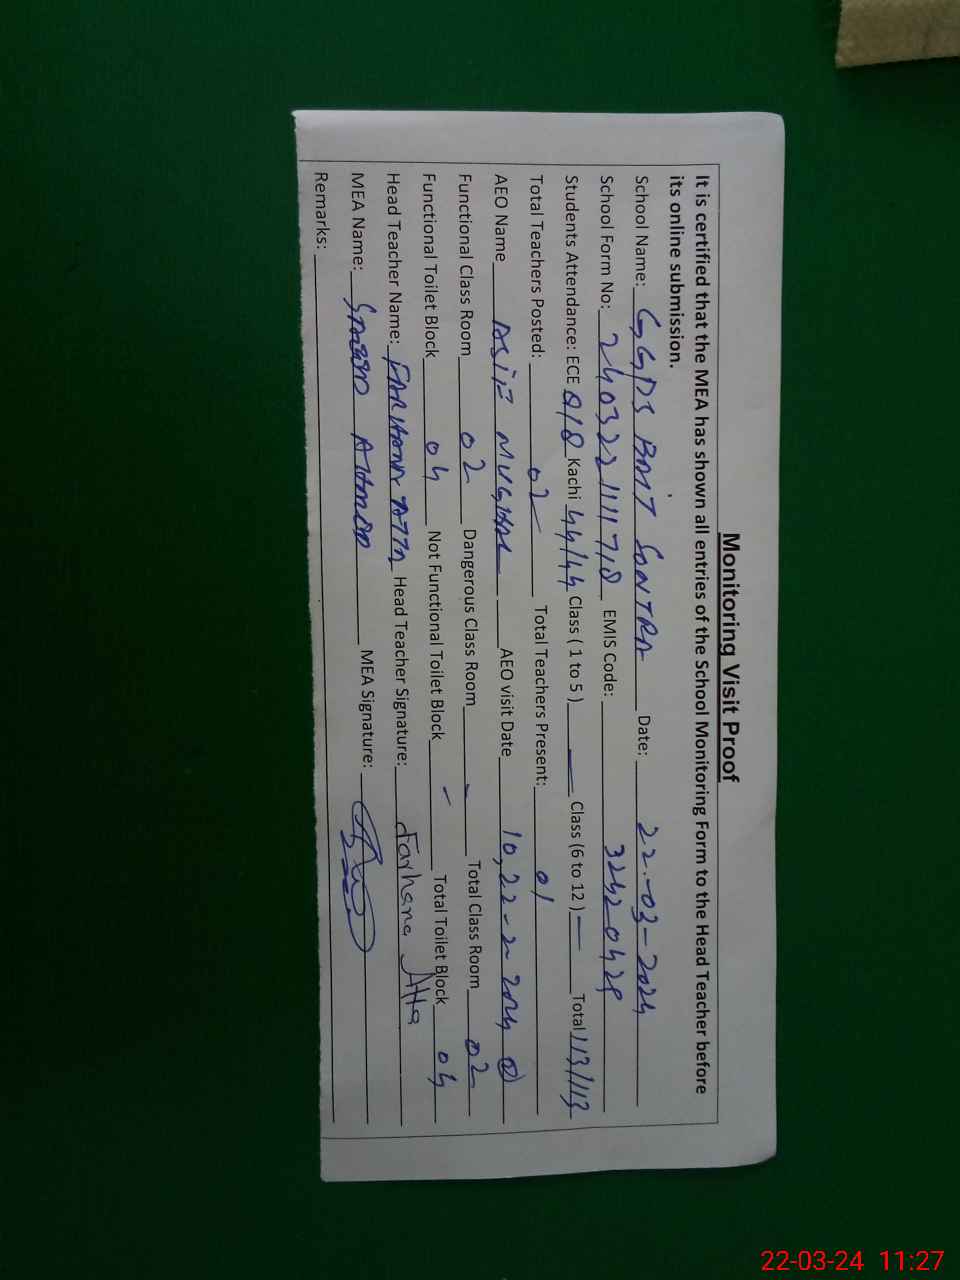 Monitoring Visit Proof
It is certified that the MEA has shown all entries of the School Monitoring Form to the Head Teacher before
its online submission.
School Name: GGPS BAIT SONTRA Date: 22-03-2024
School Form No: 240322111718 EMIS Code: 32520429
Students Attendance: ECE 8/8 Kachi 44/44 Class ( 1 to 5 ) — Class (6 to 12 ) — Total 113/113
Total Teachers Posted: 02 Total Teachers Present: 01
AEO Name ASIF MUGHAL AEO visit Date 10,22-2-2024 ②
Functional Class Room 02 Dangerous Class Room - Total Class Room 02
Functional Toilet Block 04 Not Functional Toilet Block - Total Toilet Block 04
Head Teacher Name: FARHANA ATTA Head Teacher Signature: Farhana Atta
MEA Name: AHMED MEA Signature:
Remarks:
22-03-24 11:27